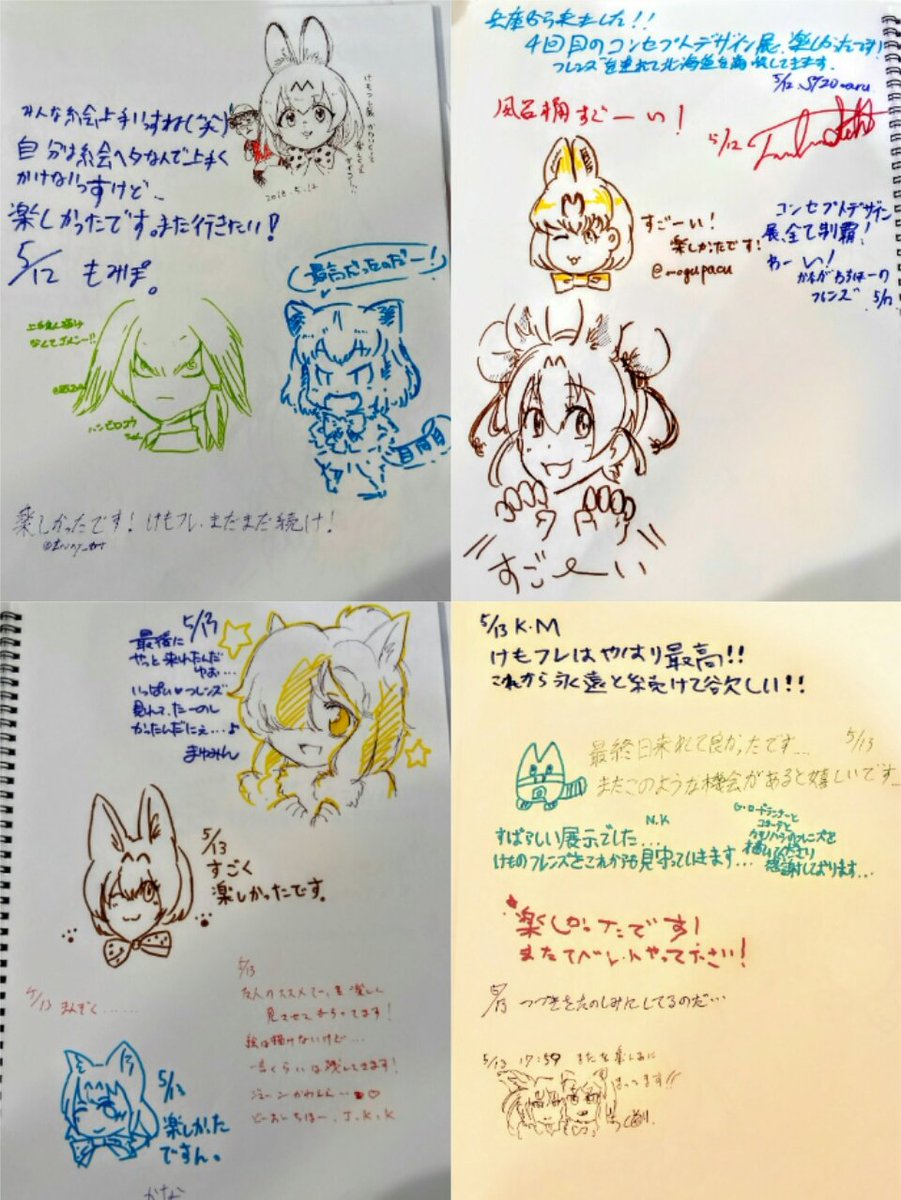 みんな絵上手いっすね(笑)
自分は絵ヘタなんで上手く
かけないっすけど…
楽しかったです。また行きたい!
5/12 もみぽ。
2018.5.12
最高だったのだー!
上手く描け
なくてゴメンー!!
ハシビロコウ
楽しかったです! けもフレ、まだまだ続け!
兵庫から来ました!!
4回目のコンセプトデザイン展、楽しかったです!
フレンズを連れて北海道を
5/12
風呂桶すごーい!
5/12
すごーい!
楽しかったです!
@mogupacu
コンセプトデザイン
展、全て制覇!
わーい!
フレンズ
すごーい
5/13
最後に
やっと来れたんだ
いっぱい♥フレンズ
見れて、たーのし
かったんだにぇ…♪
まゆみん
5/13
すごく
楽しかったです。
5/13 まんぞく……
5/13
友人のススメで
見させてもらってます!
絵は描けないけど…
一言くらいは残してきます!
J.K.K
5/13
楽しかった
ですん。
かなな
5/13 K.M
けもフレはやはり最高!!
これから永遠と続けて欲しい!!
最終日来れて良かったです… 5/13
またこのような機会があると嬉しいです…
すばらしい展示でした… N.K
けものフレンズをこれからも見守っていきます…
G・ロードランナーと
コヨーテと
カモノハシのフレンズを
描いて下さり
感謝しております…
楽しかったです!
またイベントやって下さい!
5/13 つづきをたのしみにしてるのだ…
5/13 17:59 また楽しみに
まってます!!